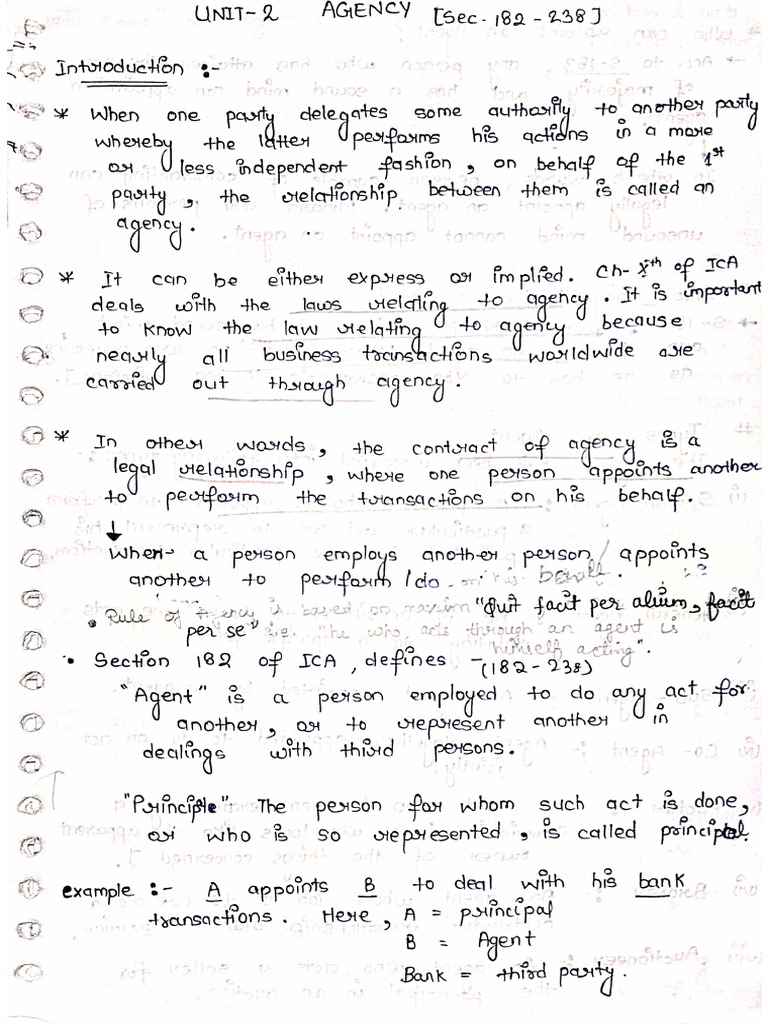 UNIT-2 AGENCY [Sec. 182 - 238]
Introduction :-
* When one party delegates some authority to another party
whereby the latter performs his actions in a more
or less independent fashion, on behalf of the 1st
party, the relationship between them is called an
agency.
* It can be either express or implied. Ch- Xth of ICA
deals with the laws relating to agency. It is important
to know the law relating to agency because
nearly all business transactions worldwide are
carried out through agency.
* In other words, the contract of agency is a
legal relationship, where one person appoints another
to perform the transactions on his behalf.
↓
When a person employs another person / appoints
another to perform / do on his behalf.
• Rule of Agency is based on maxim "Quit facit per alium, facit
per se" i.e. he who acts through an agent is
himself acting".
• Section 182 of ICA, defines - (182 - 238)
"Agent" is a person employed to do any act for
another, or to represent another in
dealings with third persons.
"Principle". The person for whom such act is done,
or who is so represented, is called principal.
example :- A appoints B to deal with his bank
transactions. Here, A = principal
B = Agent
Bank = third party.